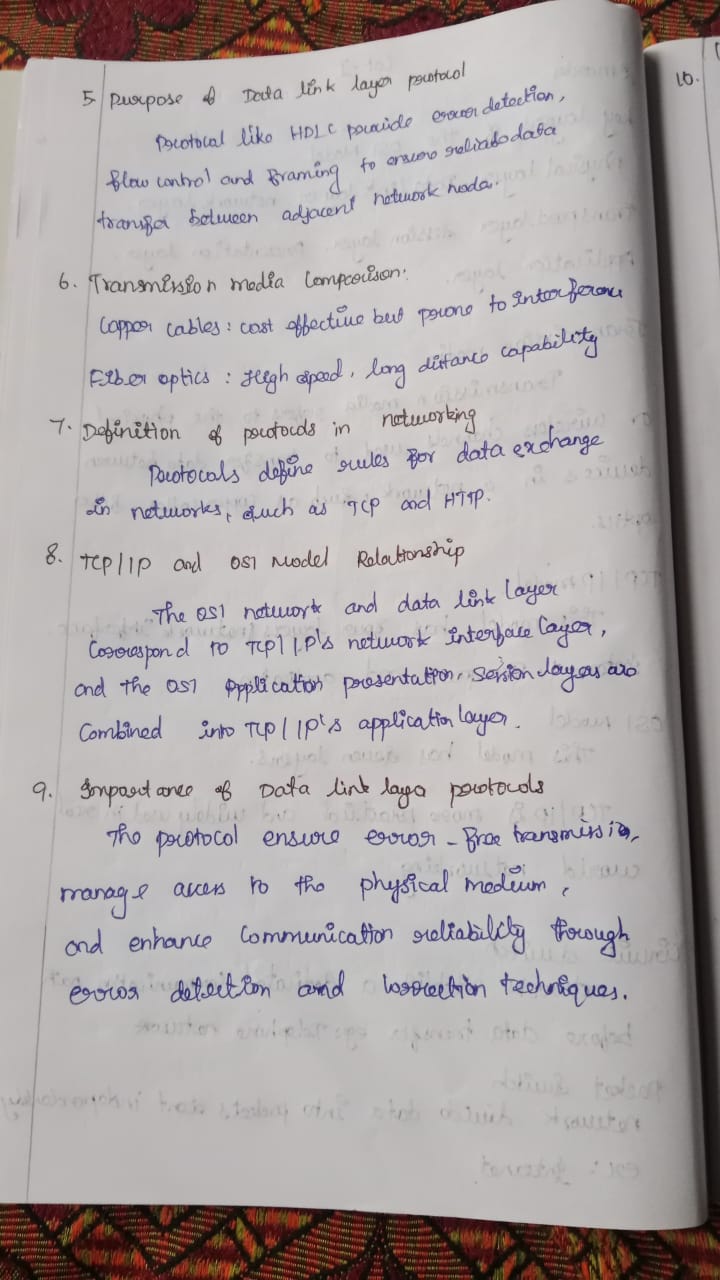 5. Purpose of Data link layer protocol
Protocol like HDLC provide error detection,
flow control and Framing to ensure reliable data
transfer between adjacent network node.
6. Transmission media Comparison.
Copper cables: cost effective but prone to interference
Fiber optics: High speed, long distance capability
7. Definition of protocols in networking
Protocols define rules for data exchange
in networks, such as TCP and HTTP.
8. TCP/IP and OSI Model Relationship
The OSI network and data link layer
Correspond to TCP/IP's network interface layer,
and the OSI Application presentation, session layers are
Combined into TCP/IP's application layer.
9. Importance of Data link layer protocols
The protocol ensure error-free transmission,
manage access to the physical medium,
and enhance Communication reliability through
error detection and correction techniques.
10.